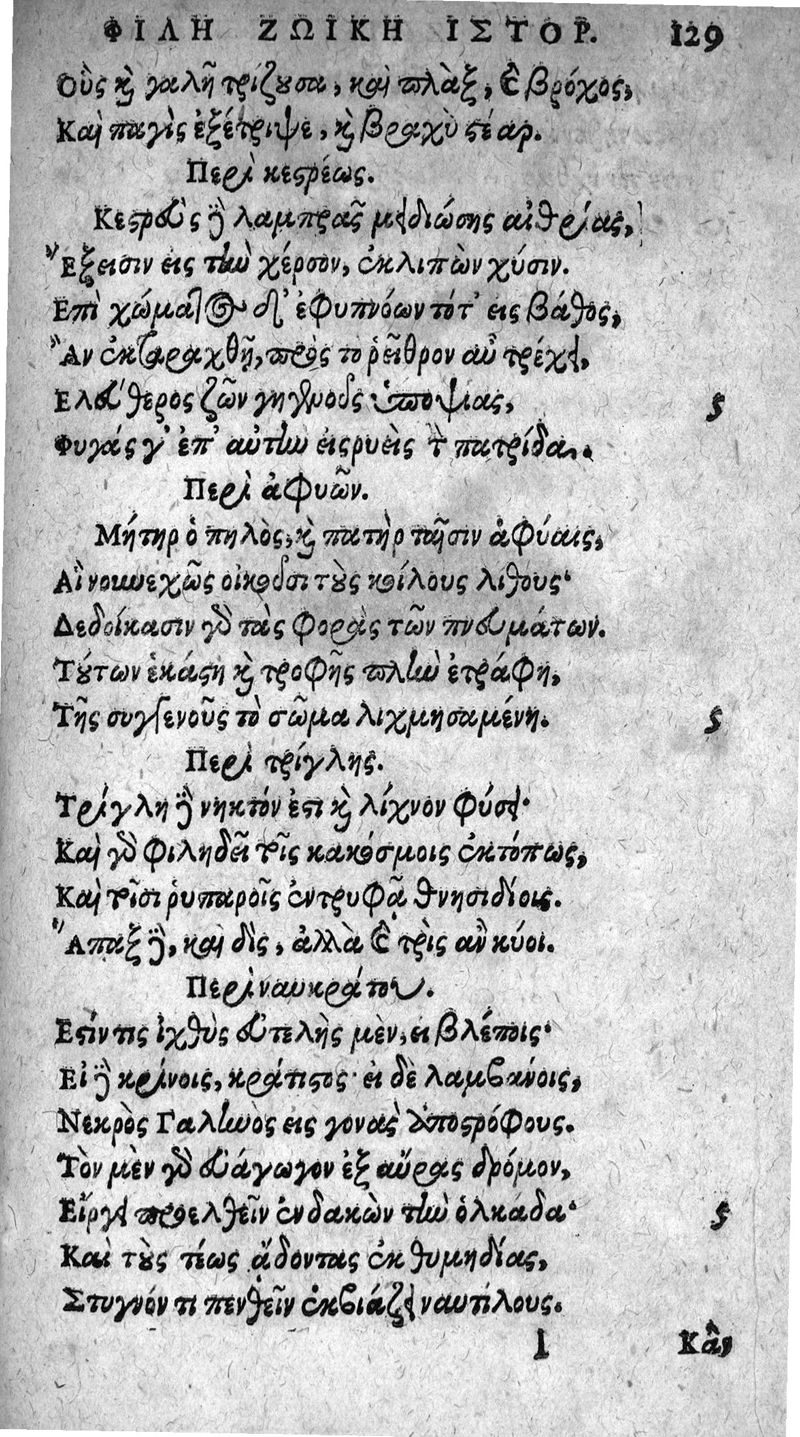 ΦΙΛΗ ΖΩΙΚΗ ΙΣΤΟΡ. 129
Οὓς καὶ γαλῆ τρίζουσα, καὶ πλὰξ, καὶ βρόχος,
Καὶ παγὶς ἐξέτριψε, καὶ βραχὺ στέαρ.
Περὶ κεστρέως.
Κεστρεὺς δὲ λαμπρᾶς μειδιώσης αἰθρίας,
Ἔξεισιν εις τὴν χέρσον, ἐκλιπὼν χύσιν.
Επὶ χώματος δ' ἐφυπνόων τότ' εις βάθος,
Ἂν ἐκταραχθῇ, πρὸς το ῥεῖθρον αὖ τρέχει,
Ελεύθερος ζῶν γηγενοῦς ὑποψίας,
Φυγάς γ' ἐπ' αὐτὴν εἰσρυεὶς τὴν πατρίδα.
Περὶ ἀφυῶν.
Μήτηρ ὁ πηλὸς, καὶ πατὴρ ταῖσιν ἀφύαις,
Αἳ συνεχῶς οἰκοῦσι τοὺς κοίλους λίθους·
Δεδοίκασιν γὰρ τὰς φορὰς τῶν πνευμάτων.
Τούτων ἑκάστη καὶ τροφῆς πλὴν ἐτράφη,
Τῆς συγγενοῦς τὸ σῶμα λιχμησαμένη.
Περὶ τρίγλης.
Τρίγλη δὲ νηκτόν ἐστι καὶ λίχνον φύσει·
Καὶ γὰρ φιληδεῖ τοῖς κακόσμοις ἐκτόπως,
Καὶ τοῖσι ῥυπαροῖς ἐντρυφᾷ θνησιδίοις.
Ἅπαξ δὲ, καὶ δὶς, ἀλλὰ καὶ τρὶς ἂν κύοι.
Περὶ ναυκράτου.
Εστίν τις ἰχθὺς εὐτελὴς μὲν, ει βλέποις·
Εἰ δὲ κρίνοις, κράτιστος· ει δὲ λαμβάνοις,
Νεκρὸς Γαλήνὸς εις γονὰς ὑποστρόφους.
Τὸν μὲν γὰρ εὐάγωγον ἐξ αὔρας δρόμον,
Εἴργει προελθεῖν ἐνδακὼν τὴν ὁλκάδα·
Καὶ τοὺς τέως ᾄδοντας ἐκ θυμηδίας,
Στυγνόν τι πενθεῖν ἐκβιάζει ναυτίλους.
I Κἂν